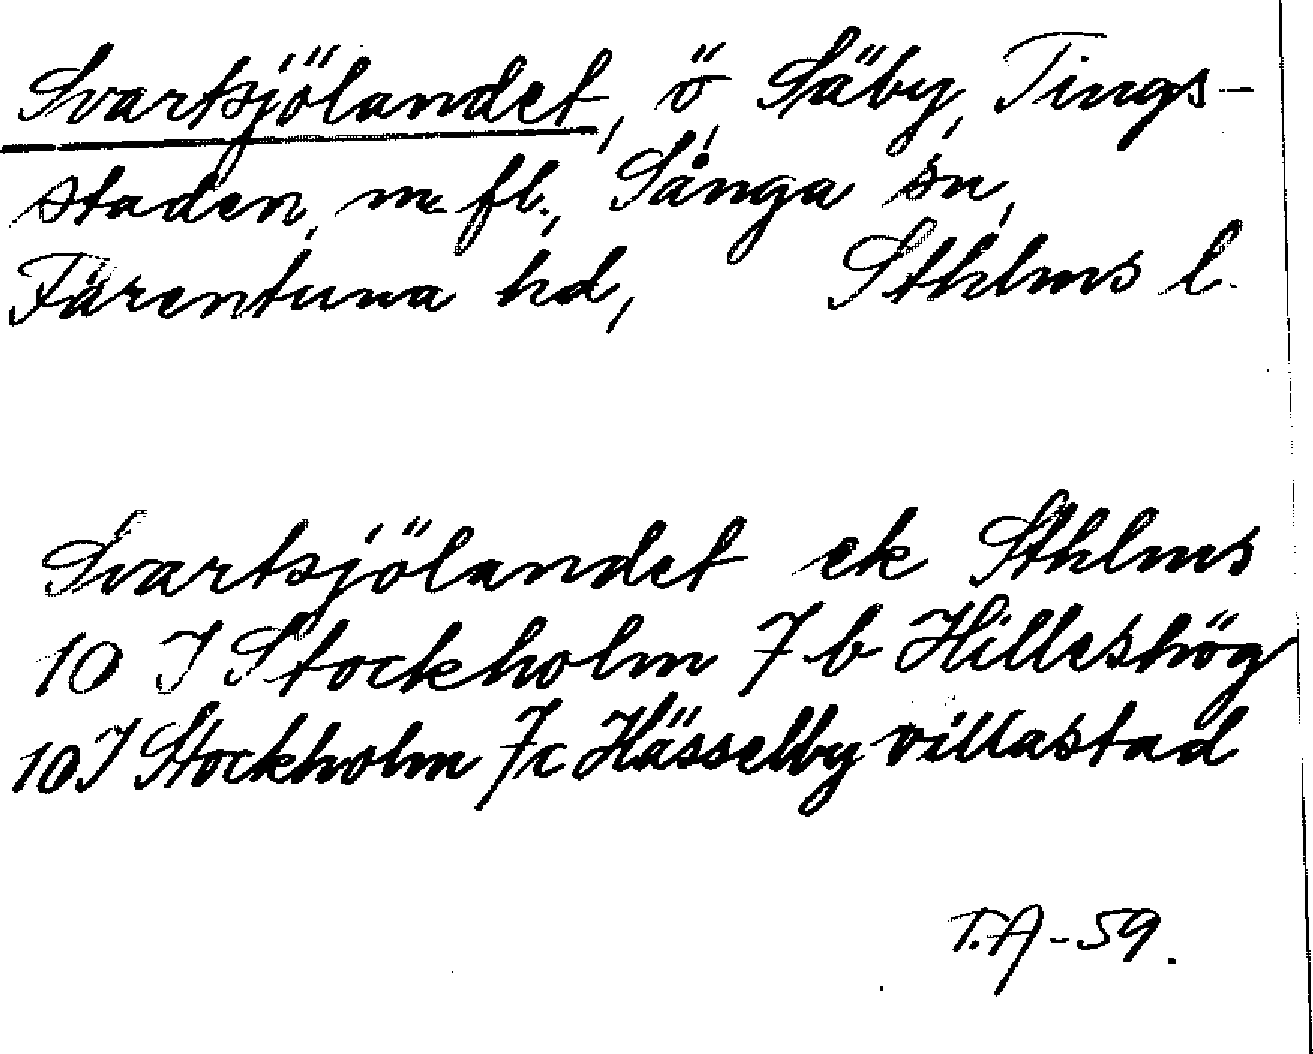 Svartsjölandet, ö, Säby, Tings-
staden, m fl., Sånga sn,
Färentuna hd, Sthlms l.
Svartsjölandet ek Sthlms
10 I Stockholm 7 b Hilleshög
10 I Stockholm 7c Hässelby villastad
T.A - 59.